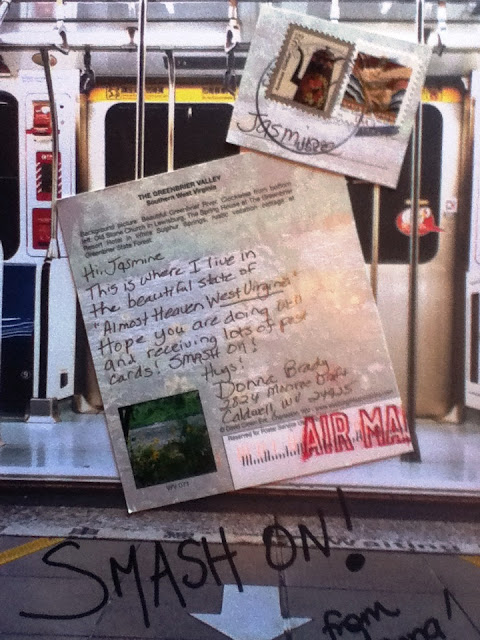 Jasmine
THE GREENBRIER VALLEY
Southern West Virginia
Background picture: Beautiful Greenbrier River. Clockwise from bottom
left: Old Stone Church in Lewisburg, The Spring House at The Greenbrier
Resort Hotel in White Sulphur Springs, rustic vacation cottage at
Greenbrier State Forest.
Hi Jasmine
This is where I live in
the beautiful state of
"Almost Heaven West Virginia"
Hope you are doing well
and receiving lots of post
cards! SMASH ON!
Hugs!
Donna Brady
Caldwell, WV 24925
Reserved for Postal Service
AIR MA
SMASH ON!
from